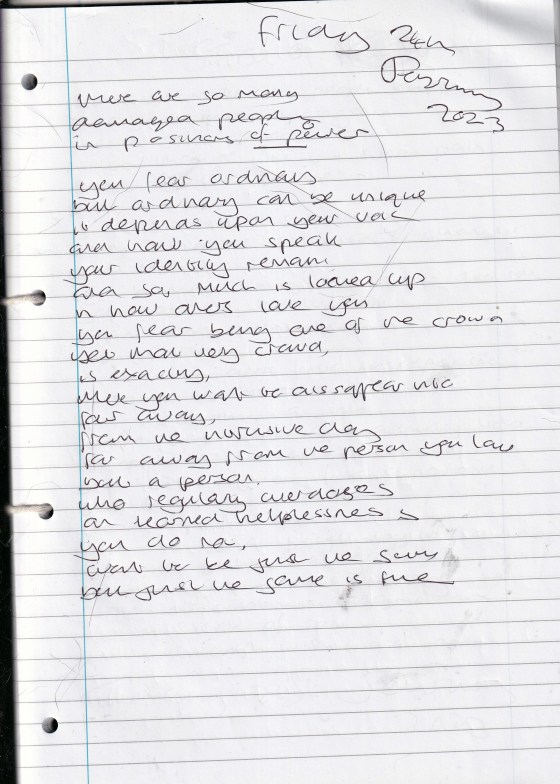 Friday 24th
February
2023
there are so many
damaged people
in positions of power
you fear ordinary
but ordinary can be unique
it depends upon your
and how you speak
your identity remain
and so much is locked up
in how others love you
you fear being one of the crowd
yet that very crowd,
is exactly,
where you want to dissappear into
far away,
from the intrusive day
far away from the person you love
but a person,
who regularly overdoses
on learned helplessness
you do not,
want to be just the same
but just the same is fine